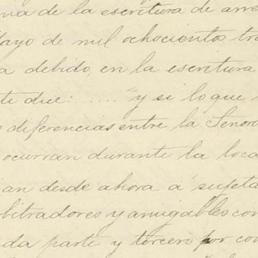 nia de la escritura de arre
ayo de mil ochociento tre
a debido, en la escritura
te due: ..... "y si lo que
diferencias entre la Senor
ocurran durante la loca
an desde ahora á sujeta
bitradores y amigables com
da parte y tercero por con